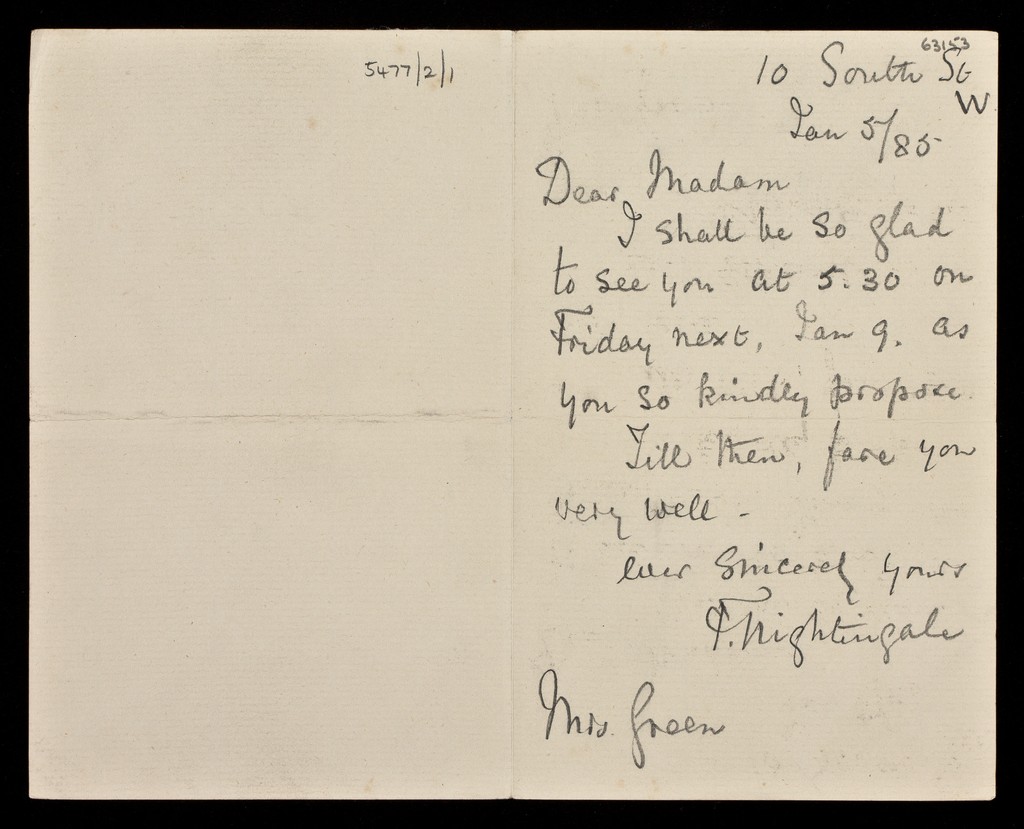 5477/2/1
63153
10 South St
W
Jan 5/85
Dear Madam
I shall be so glad
to see you at 5.30 on
Friday next, Jan 9. as
you so kindly propose.
Till then, fare you
very well -
ever sincerely yours
F. Nightingale
Mrs. Green